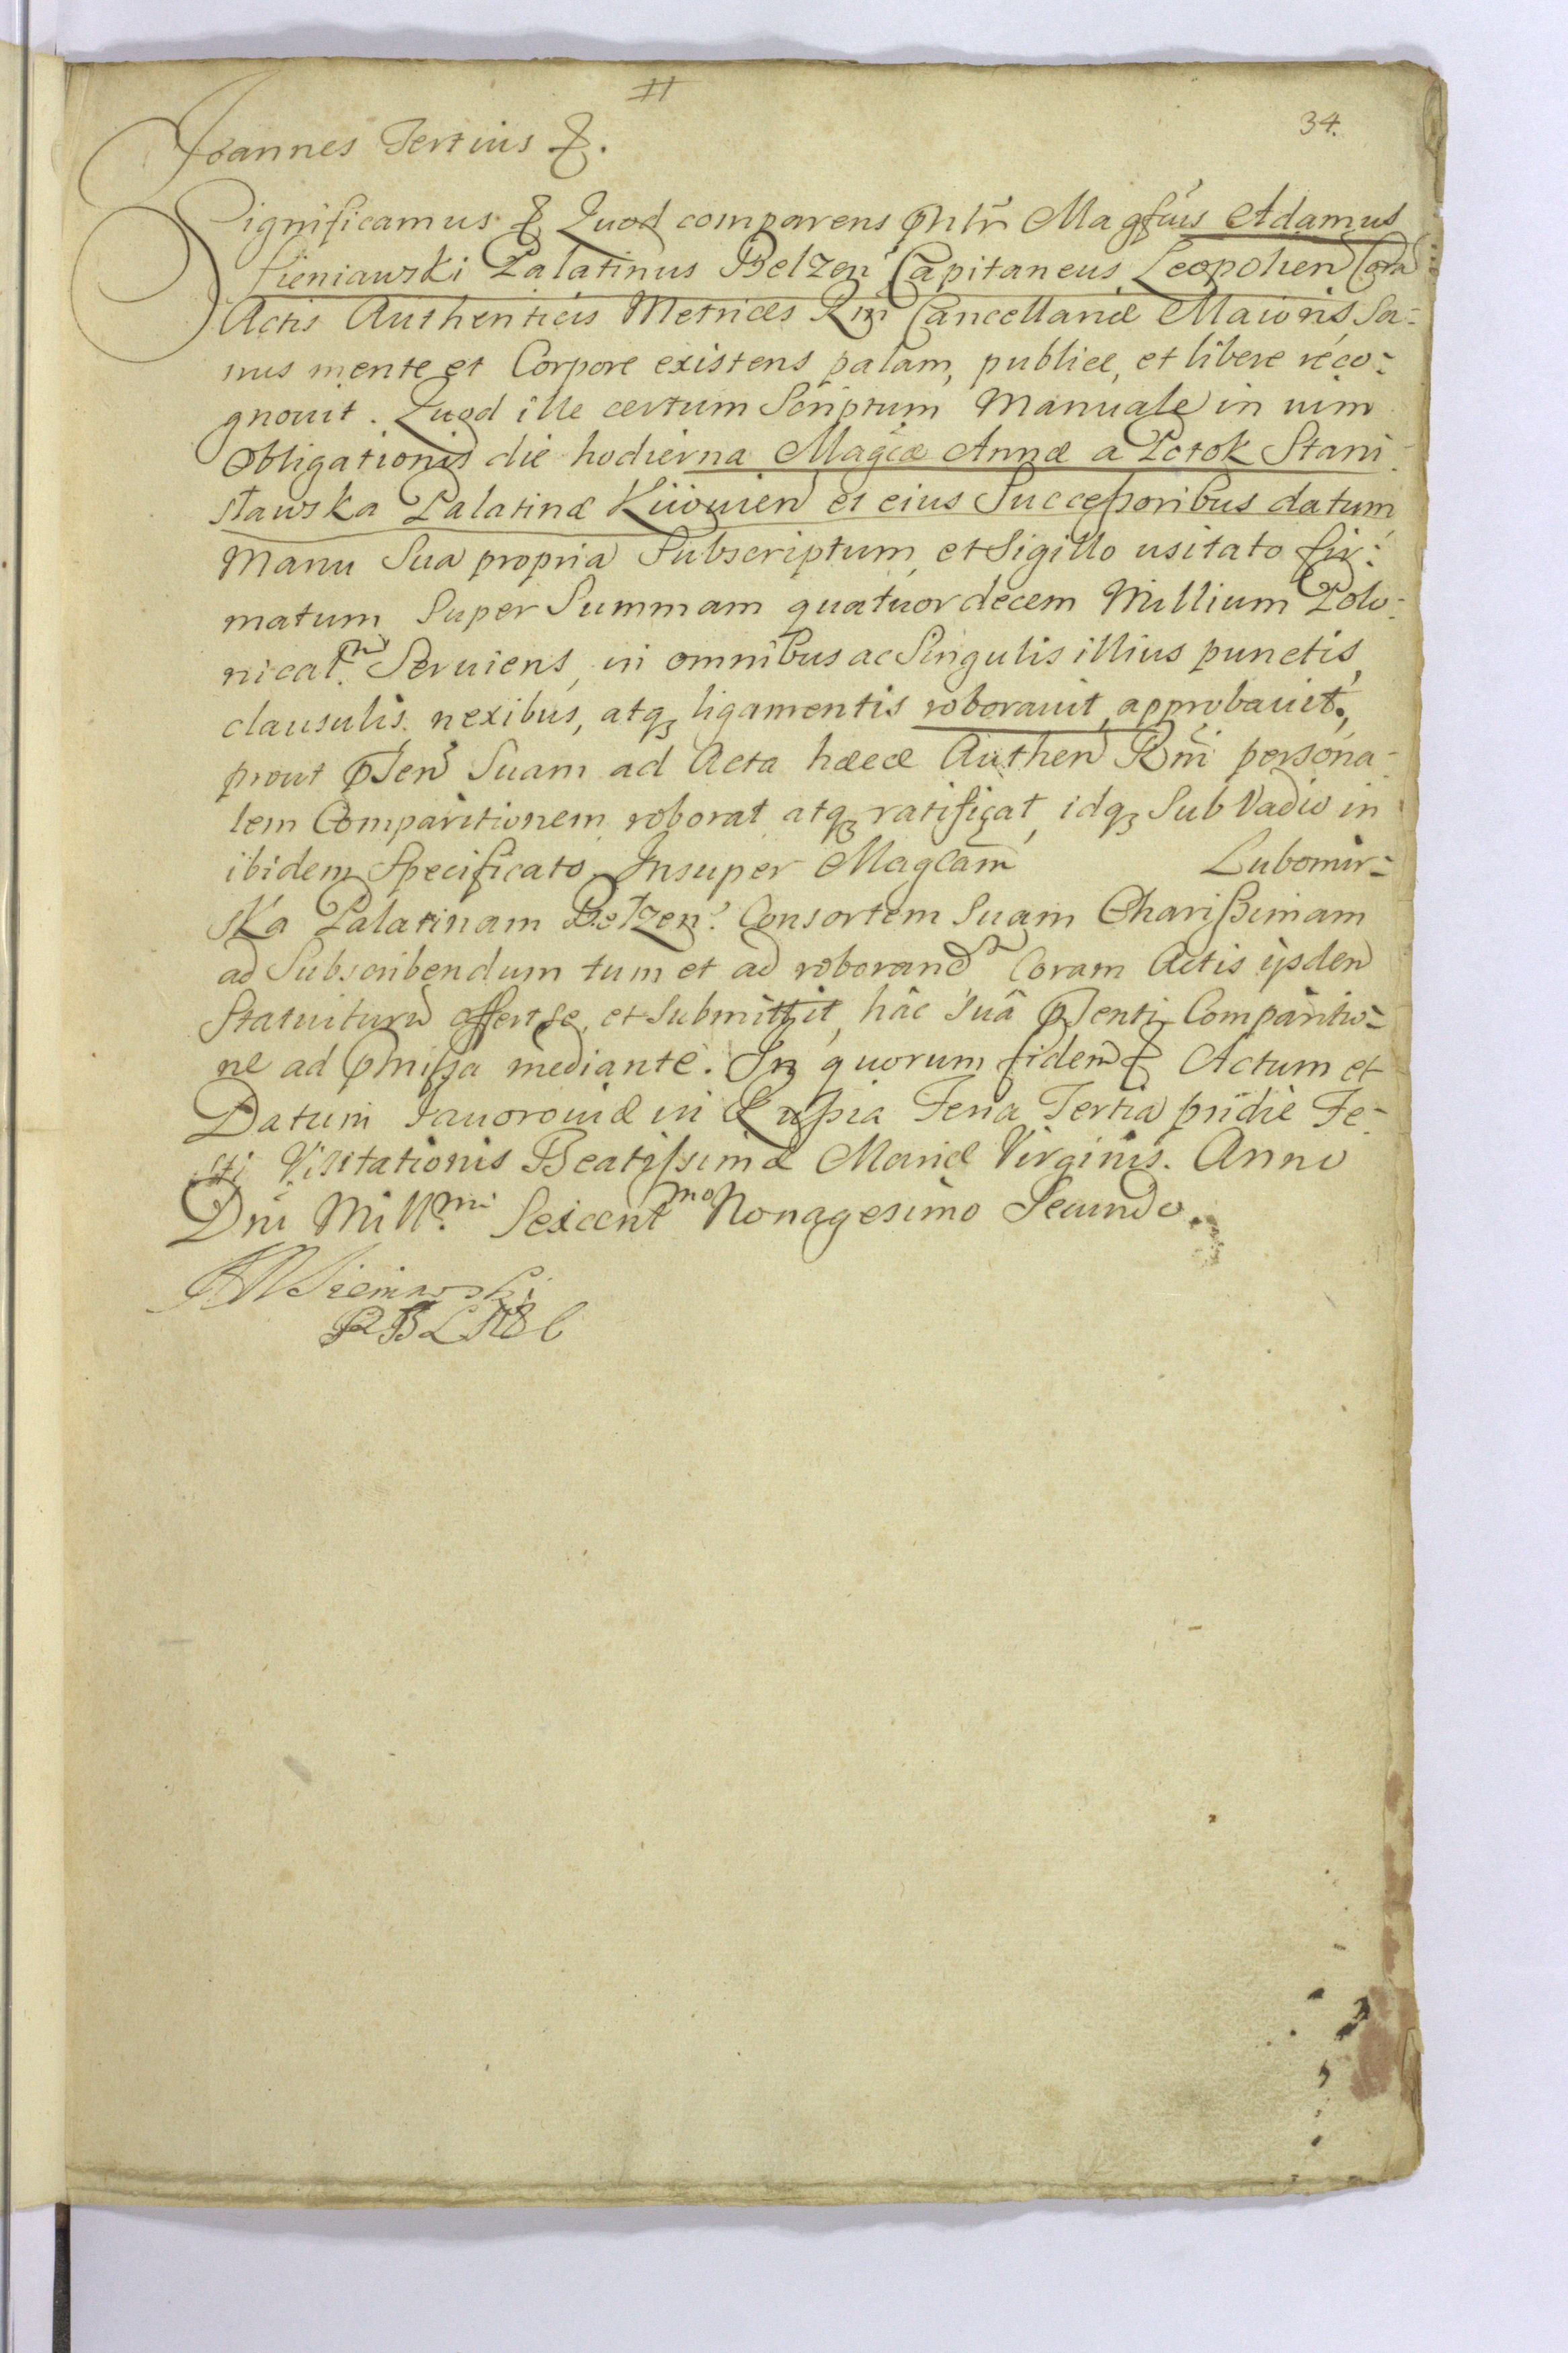 #
34.
Joannes Tertius &.
Significamus & Quod comparens pntr Magfcus Adamus
Sieniawski Palatinus Belzen Capitaneus Leopolien Cora
Actis Authenticis Metrices Rni Cancellariæ Maioris, Sa-
nus mente et Corpore existens palam, publice, et libere reco-
gnouit. Quod ille certum Scriptum Manuale in uim
Obligationis die hodierna Magcæ Annæ a Potok Stani
sławska Palatinæ Kiiouien et eius Successoribus datum
Manu Sua propria Subscriptum, et Sigillo usitato fir-
matum Super Summam quatuordecem Millium Polo-
nical. Seruiens, in omnibus ac Singulis illius punctis,
clausulis nexibus, atq ligamentis roborauit, approbauit,
prout pnsen Suam ad Acta hæcce Authen Rni persona-
lem Comparitionem roborat atq ratificat, idq Sub Vadio in
ibidem Specificato. Insuper Magcam Lubomir-
ska Palatinam Belzen. Consortem Suam Charissimam
ad Subscribendum tum et ad roborand Coram Actis ijsden
Statuiturū offert se, et submittit, hâc suâ psenti Comparitio-
ne ad pmissa mediante. In quorum fidem & Actum et
Datum Jauorouiæ in Russia Feria Tertia pridie Fe-
sti Visitationis Beatissimæ Mariæ Virginis. Anno
Dni Mill.mi Sexcentmo Nonagesimo Secundo.
AMSieniawski
PB LS